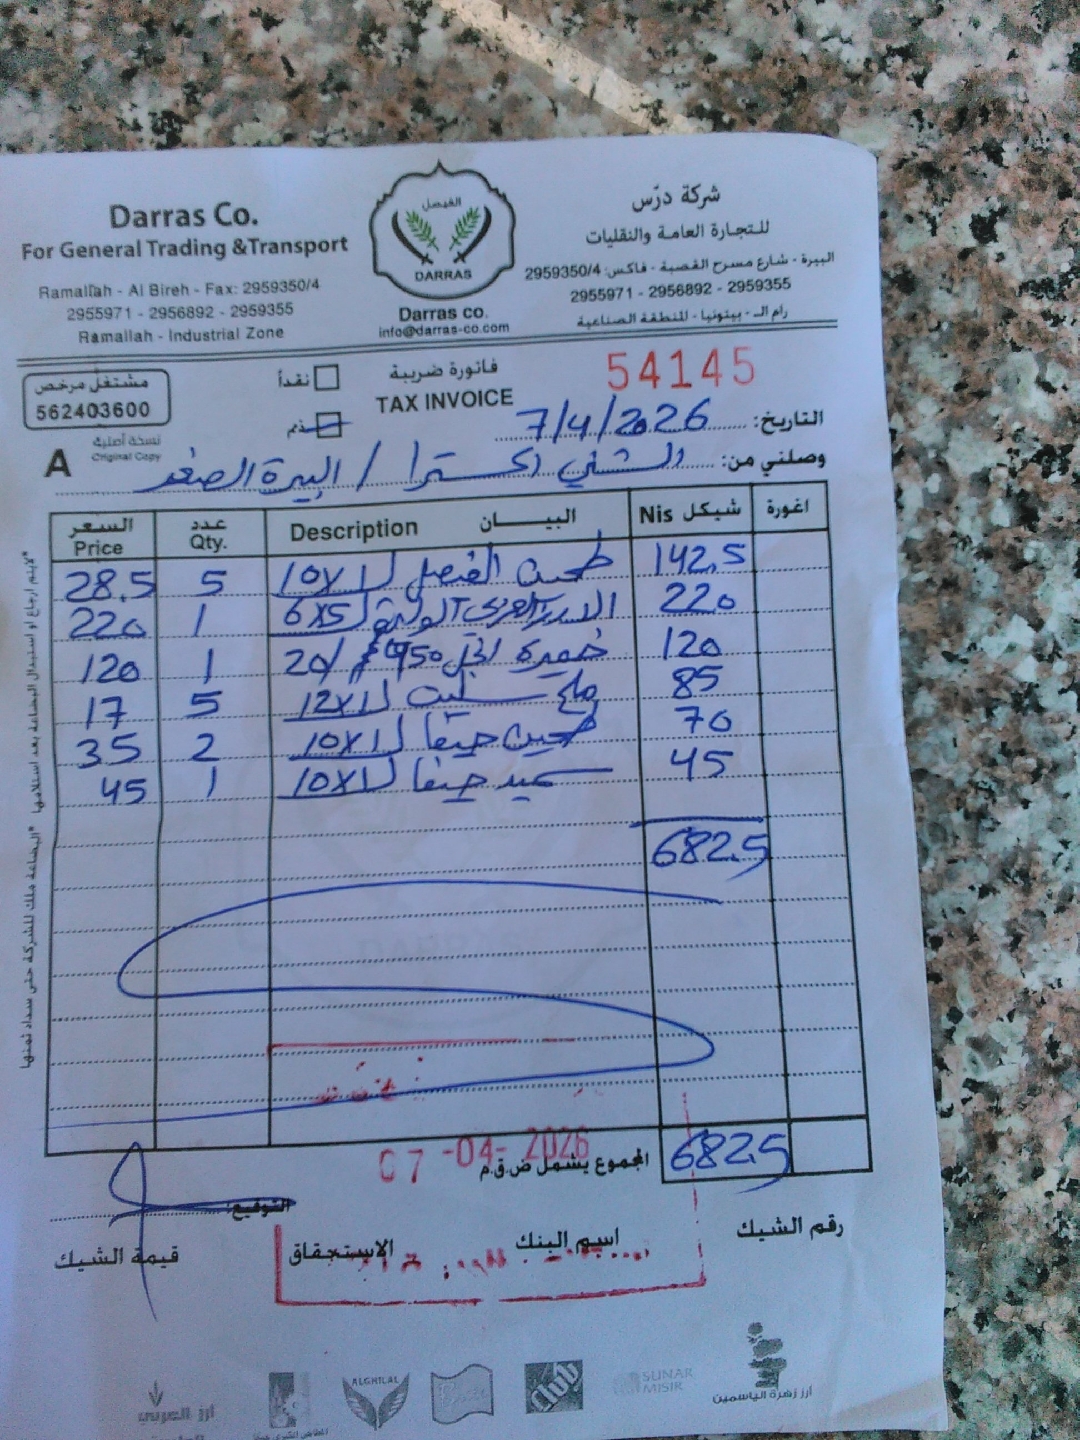 Darras Co.
For General Trading &Transport
Ramallah - Al Bireh - Fax: 2959350/4
2955971 - 2956892 - 2959355
Ramallah - Industrial Zone
الفيصل
DARRAS
Darras co.
info@darras-co.com
شركة درّس
للتجارة العامة والنقليات
البيرة - شارع مسرح القصبة - فاكس: 2959350/4
2955971 - 2956892 - 2959355
رام الـ - بيتونيا - المنطقة الصناعية
مشتغل مرخص
562403600
نقداً
ذمم
فاتورة ضريبة
TAX INVOICE
54145
التاريخ: 7/4/2026
A نسخة أصلية
Original Copy
وصلني من: الشني اكسترا / البيرة
السعر Price عدد Qty. Description البيــان Nis شيكل اغورة
28.5 5 طحين الفيصل ل 10X1 142.5
220 1 6X5 220
120 1 خميرة 950 غم /20 120
17 5 ملح ل 12X1 85
35 2 طحين حيفا ل 10X1 70
45 1 سميد حيفا ل 10X1 45
682.5
المجموع يشمل ض.ق.م 682.5
07 -04- 2026
التوقيع:
رقم الشيك اسم البنك الاستحقاق قيمة الشيك
*لايتم ارجاع او استبدال البضاعة بعد استلامها *البضاعة ملك للشركة حتى سداد ثمنها
أرز العربي
ALGHILAL
SUNAR
MISIR
أرز زهرة الياسمين